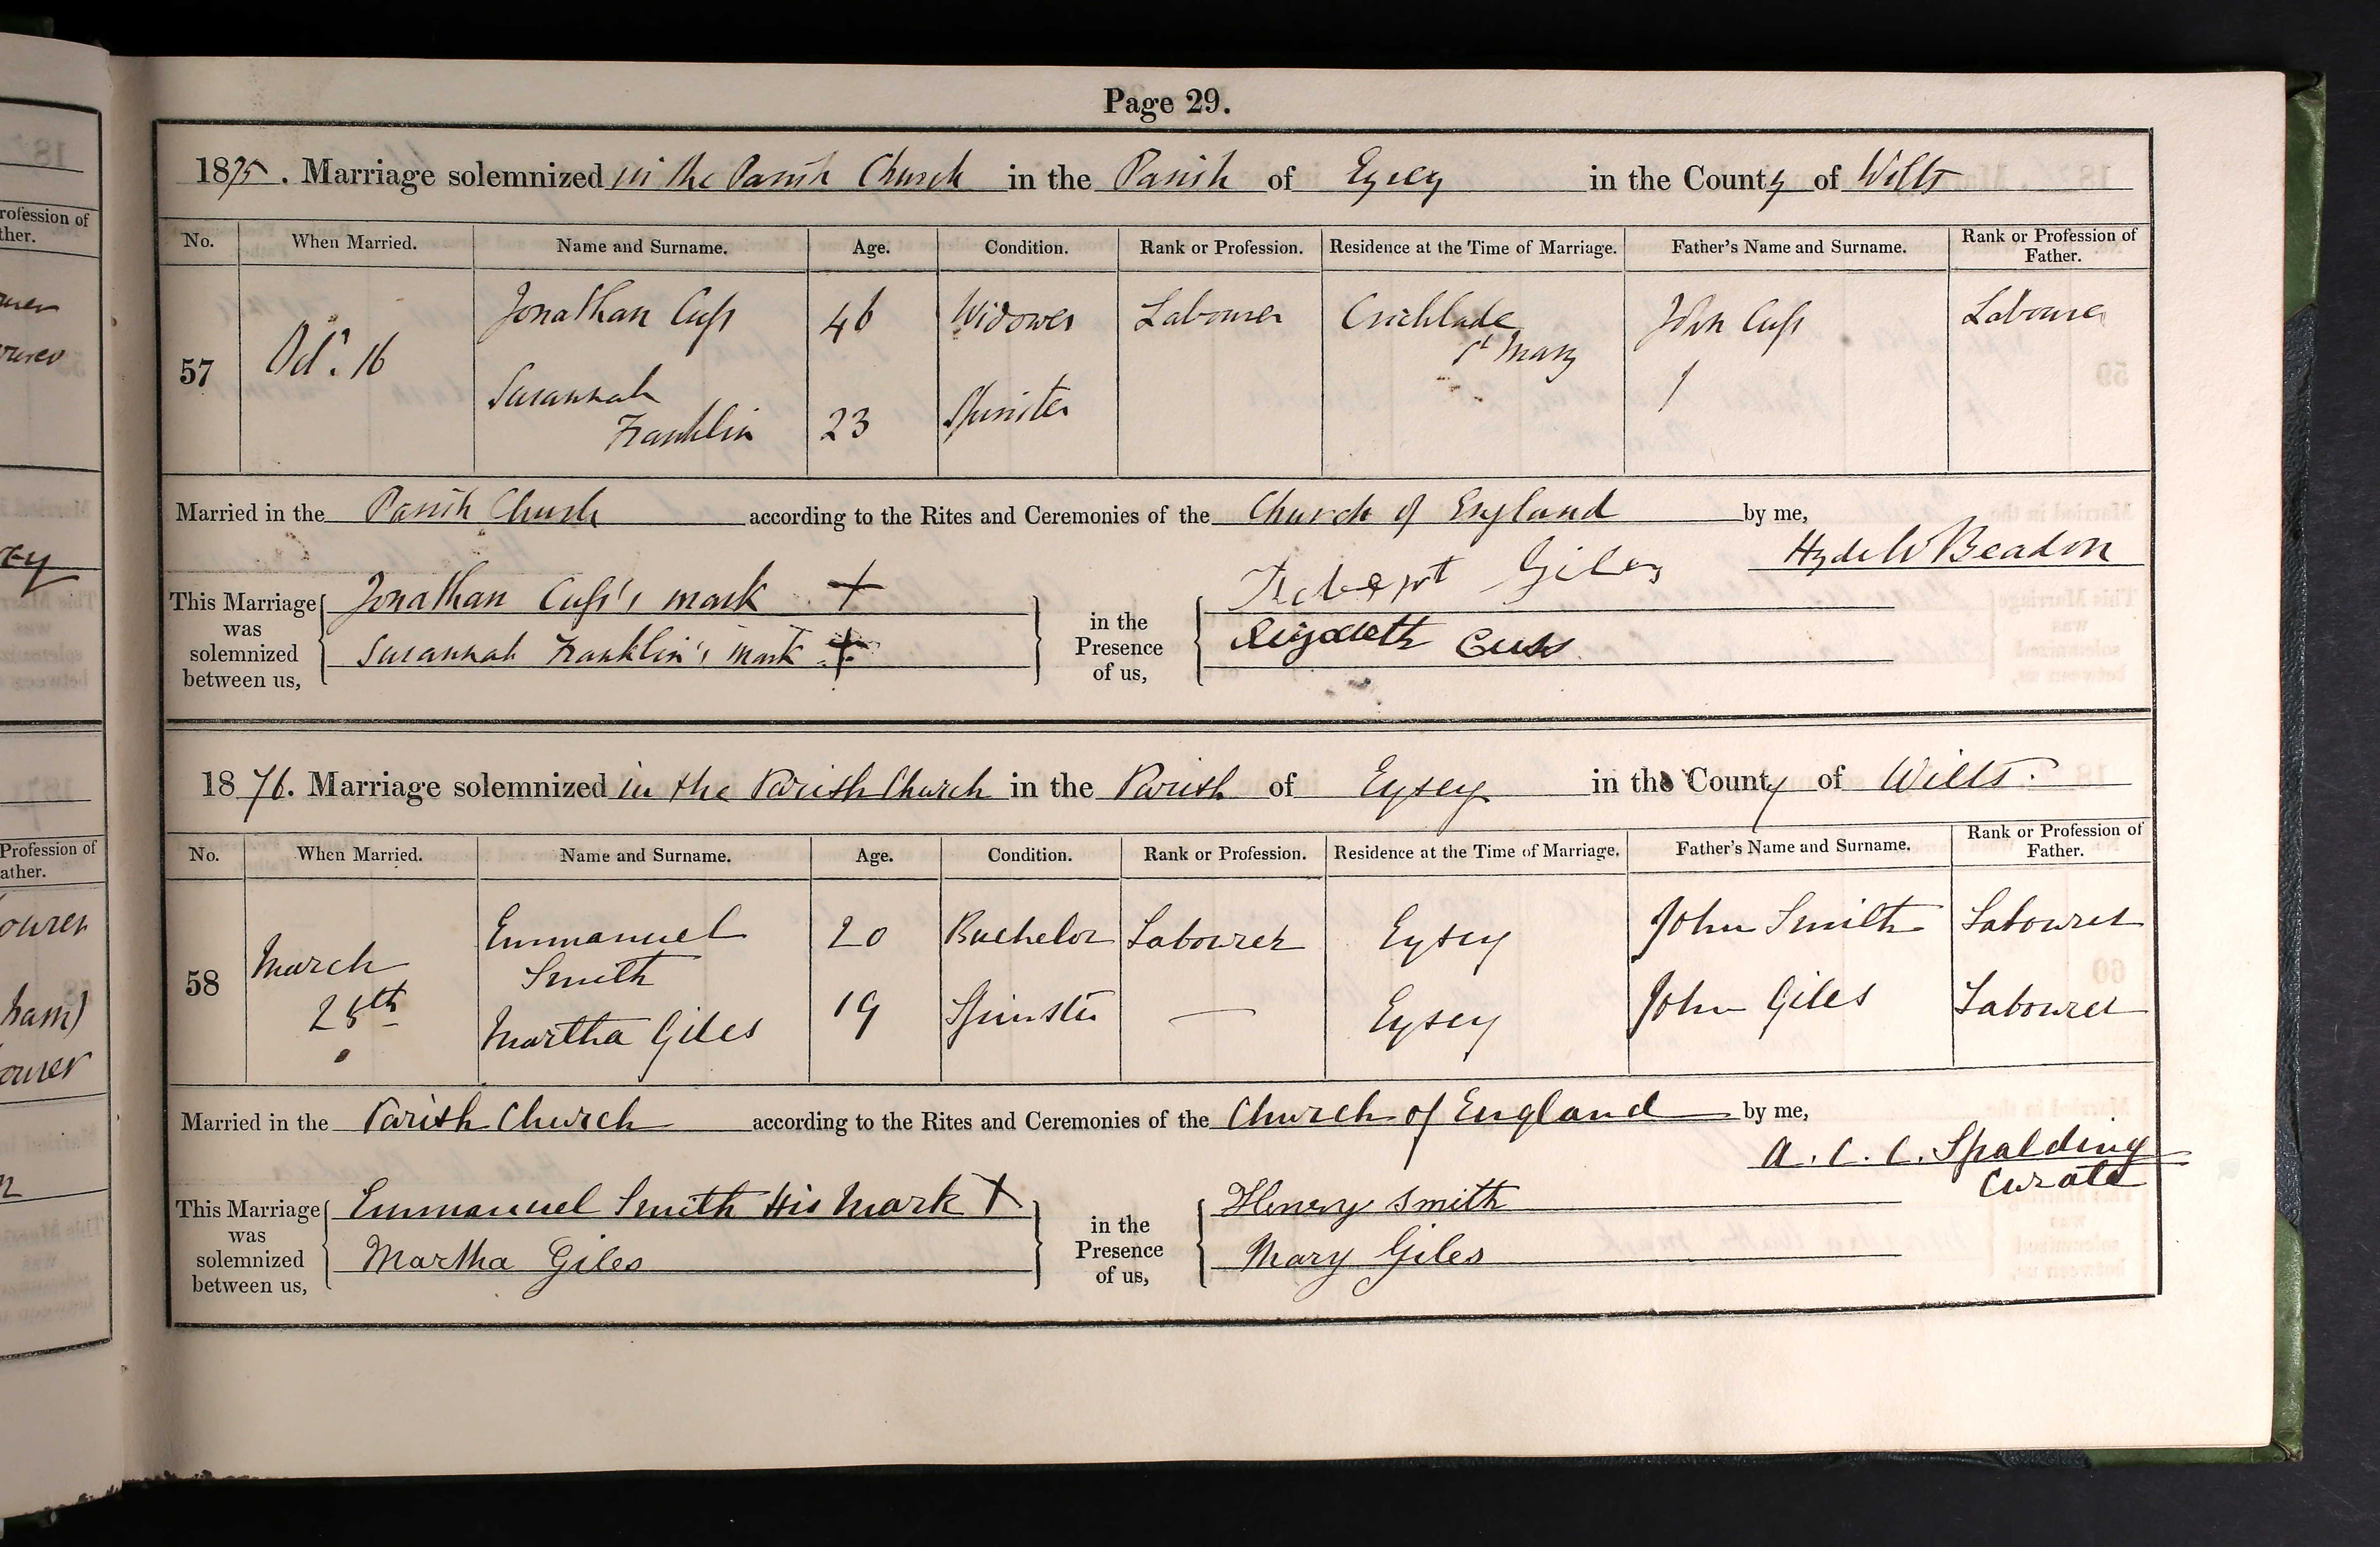 Page 29.
1875. Marriage solemnized in the Parish Church in the Parish of Eysey in the County of Wilts
No. When Married. Name and Surname. Age. Condition. Rank or Profession. Residence at the Time of Marriage. Father's Name and Surname. Rank or Profession of Father.
57 Oct. 16 Jonathan Cuss 46 Widower Labourer Cricklade St Mary John Cuss Labourer
Susannah Franklin 23 Spinster /
Married in the Parish Church according to the Rites and Ceremonies of the Church of England by me,
Hyde W Beadon
This Marriage was solemnized between us, Jonathan Cuss's mark + in the Presence of us, Robert Giles
Susannah Franklin's mark + Elizabeth Cuss
1876. Marriage solemnized in the Parish Church in the Parish of Eysey in the County of Wilts.
No. When Married. Name and Surname. Age. Condition. Rank or Profession. Residence at the Time of Marriage. Father's Name and Surname. Rank or Profession of Father.
58 March 28th Emmanuel Smith 20 Bachelor Labourer Eysey John Smith Labourer
Martha Giles 19 Spinster — Eysey John Giles Labourer
Married in the Parish Church according to the Rites and Ceremonies of the Church of England by me,
A. C. C. Spalding
Curate
This Marriage was solemnized between us, Emmanuel Smith His Mark X in the Presence of us, Henry Smith
Martha Giles Mary Giles